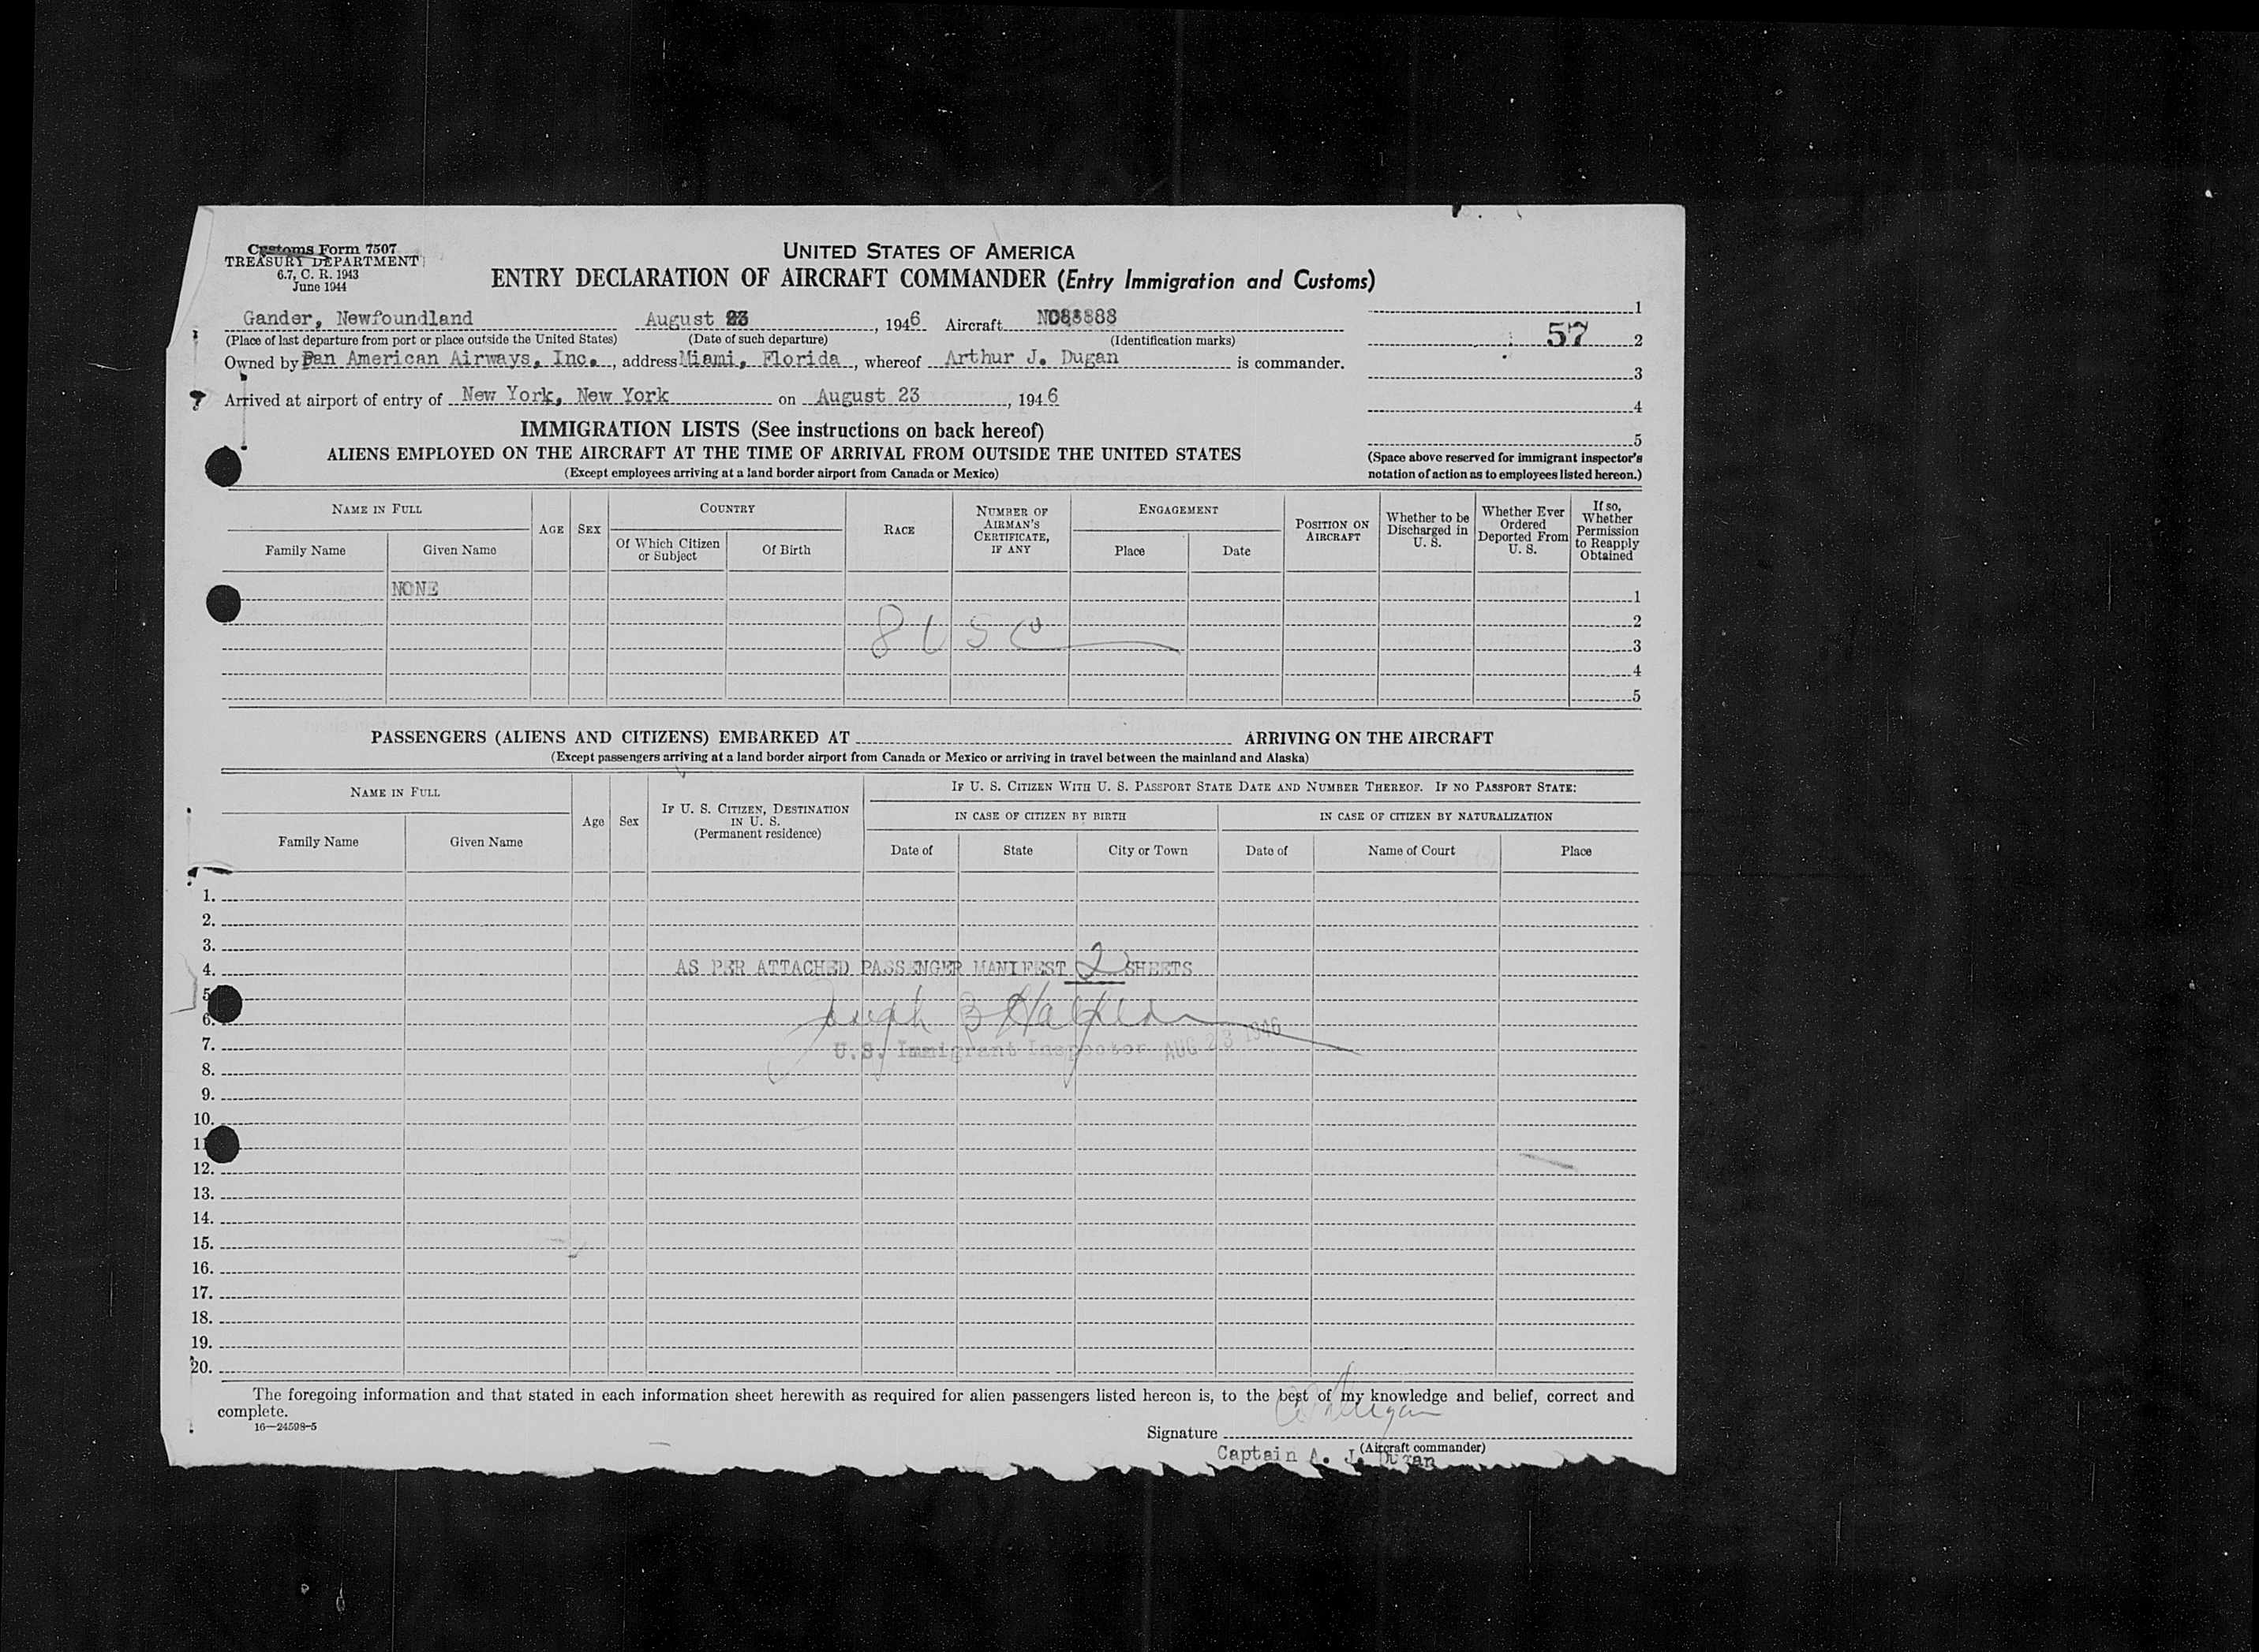 Customs Form 7507
TREASURY DEPARTMENT
6.7, C. R. 1943
June 1944
UNITED STATES OF AMERICA
ENTRY DECLARATION OF AIRCRAFT COMMANDER (Entry Immigration and Customs)
Gander, Newfoundland August 23, 1946 Aircraft NC88888
(Place of last departure from port or place outside the United States) (Date of such departure) (Identification marks)
Owned by Pan American Airways, Inc., address Miami, Florida, whereof Arthur J. Dugan is commander.
Arrived at airport of entry of New York, New York on August 23, 1946
1
57 2
3
4
5
(Space above reserved for immigrant inspector's
notation of action as to employees listed hereon.)
IMMIGRATION LISTS (See instructions on back hereof)
ALIENS EMPLOYED ON THE AIRCRAFT AT THE TIME OF ARRIVAL FROM OUTSIDE THE UNITED STATES
(Except employees arriving at a land border airport from Canada or Mexico)
NAME IN FULL
Family Name Given Name
AGE SEX
COUNTRY
Of Which Citizen or Subject Of Birth
RACE
NUMBER OF AIRMAN'S CERTIFICATE, IF ANY
ENGAGEMENT
Place Date
POSITION ON AIRCRAFT
Whether to be Discharged in U. S.
Whether Ever Ordered Deported From U. S.
If so, Whether Permission to Reapply Obtained
NONE 1
2
8 USC
3
4
5
PASSENGERS (ALIENS AND CITIZENS) EMBARKED AT ARRIVING ON THE AIRCRAFT
(Except passengers arriving at a land border airport from Canada or Mexico or arriving in travel between the mainland and Alaska)
NAME IN FULL
Family Name Given Name
Age Sex
IF U. S. CITIZEN, DESTINATION IN U. S.
(Permanent residence)
IF U. S. CITIZEN WITH U. S. PASSPORT STATE DATE AND NUMBER THEREOF. IF NO PASSPORT STATE:
IN CASE OF CITIZEN BY BIRTH IN CASE OF CITIZEN BY NATURALIZATION
Date of State City or Town Date of Name of Court Place
1.
2.
3.
4. AS PER ATTACHED PASSENGER MANIFEST 2 SHEETS
5
6. Joseph B
7. U.S. Immigrant Inspector AUG 23 1946
8.
9.
10.
11
12.
13.
14.
15.
16.
17.
18.
19.
20.
The foregoing information and that stated in each information sheet herewith as required for alien passengers listed hereon is, to the best of my knowledge and belief, correct and
complete.
16—24598-5
Signature
(Aircraft commander)
Captain A. J. Dugan